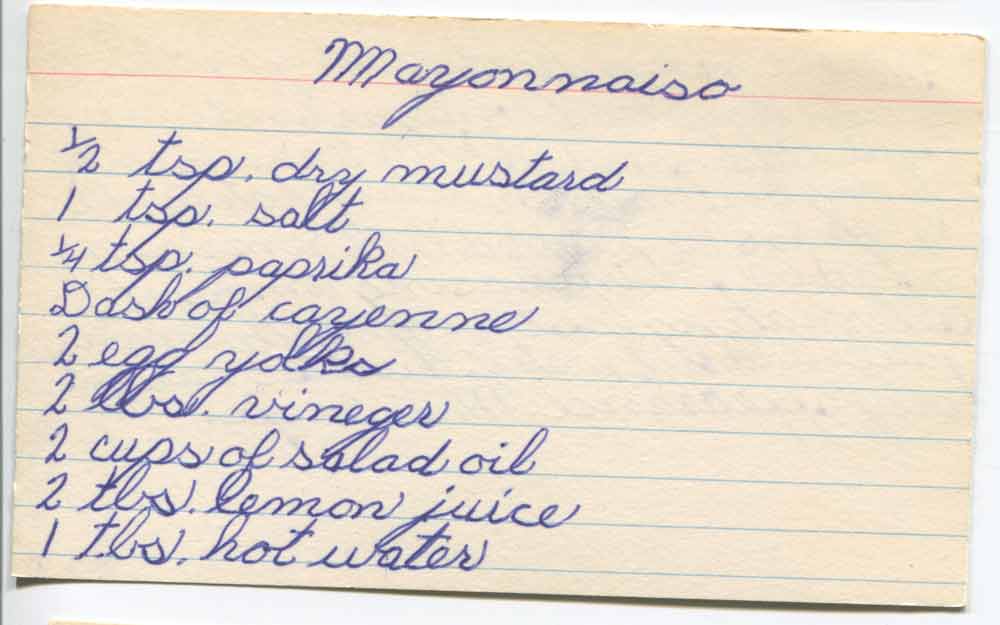 Mayonnaise
1/2 tsp. dry mustard
1 tsp. salt
1/4 tsp. paprika
Dash of cayenne
2 egg yolks
2 tbs. vineger
2 cups of salad oil
2 tbs. lemon juice
1 tbs. hot water